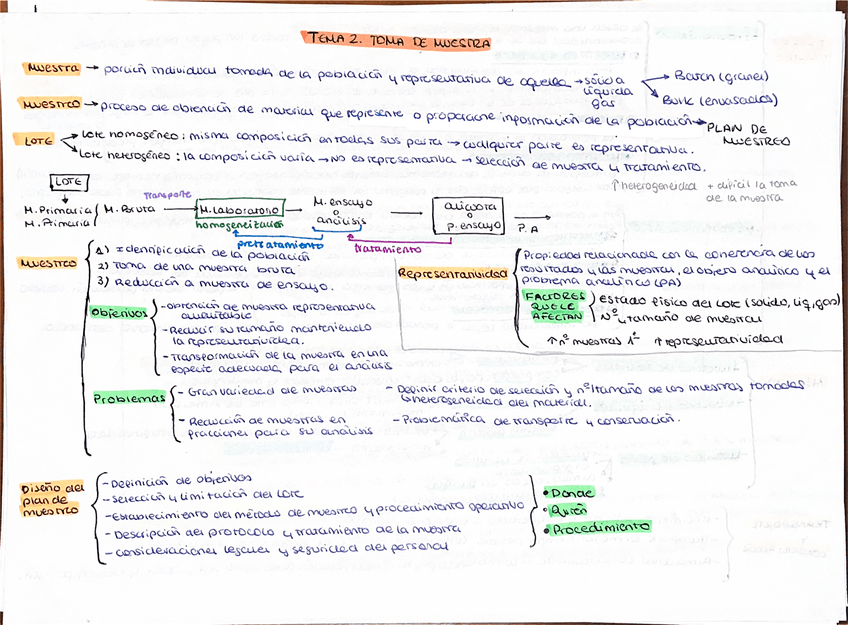 TEMA 2. TOMA DE MUESTRA
MUESTRA → porción individual tomada de la población y representativa de aquella → sólida
líquida
gas
Batch (granel)
Bulk (envasados)
MUESTREO → proceso de obtención de material que represente o proporcione información de la población → PLAN DE
MUESTREO
LOTE
Lote homogéneo: misma composición en todas sus parte → cualquier parte es representativa.
Lote heterogéneo: la composición varía → No es representativa → selección de muestra y tratamiento.
↑ heterogeneidad + difícil la toma
de la muestra
LOTE
Transporte
M. Primaria
M. Primaria
M. Bruta → M. Laboratorio → M. ensayo
o
análisis → alícuota
o
p. ensayo → P. A
homogeneización
pretratamiento
tratamiento
MUESTREO
1) Identificación de la población
2) Toma de una muestra bruta
3) Reducción a muestra de ensayo.
Objetivos
- obtención de muestra representativa
- Reducir su tamaño manteniendo
la representatividad.
- Transformación de la muestra en una
especie adecuada para el análisis
Problemas
- Gran variedad de muestras
- Reducción de muestras en
fracciones para su análisis
- Definir criterio de selección y nº/tamaño de las muestras tomadas
heterogeneidad del material.
- Problemática de transporte y conservación.
Representatividad
Propiedad relacionada con la coherencia de los
resultados y las muestras, el objeto analítico y el
problema analítico (PA)
FACTORES
QUE LE
AFECTAN
Estado físico del lote (sólido, liq, gas)
Nº y tamaño de muestra
↑ nº muestras 1ª ↑ representatividad
Diseño del
plan de
muestreo
- Definición de objetivos
- Selección y limitación del lote
- Establecimiento del método de muestreo y procedimiento operativo
- Descripción del protocolo y tratamiento de la muestra
- consideraciones legales y seguridad del personal
• Donde
• Quién
• Procedimiento